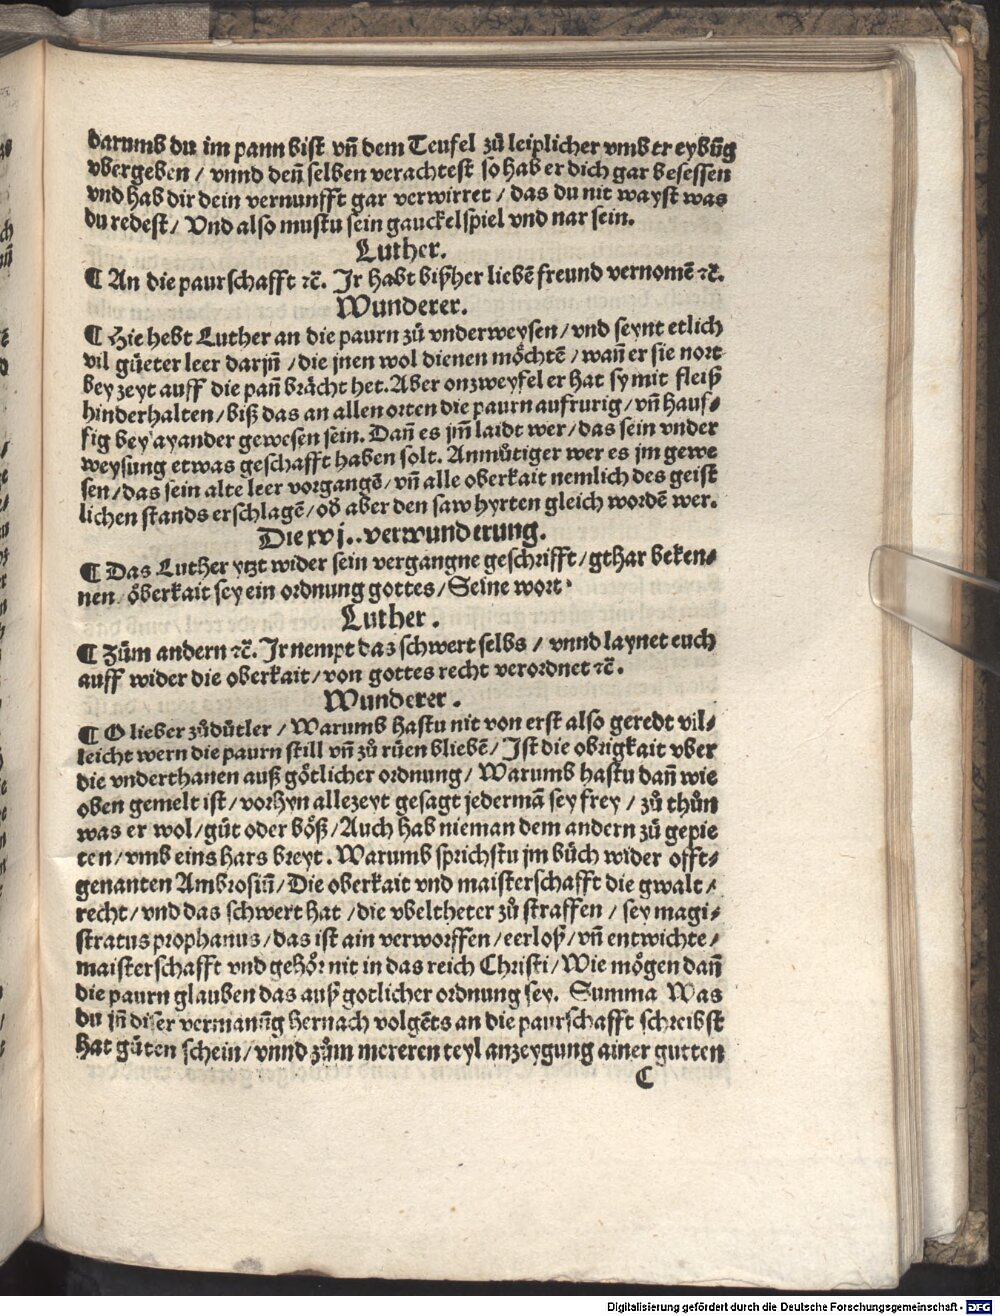 darumb du im pann bist vñ dem Teufel zů leiplicher vmbtreybũg
vbergeben / vnnd deñ selben verachtest so hab er dich gar besessen
vnd hab dir dein vernunfft gar verwirret / das du nit wayst was
du redest / Vnd also mustu sein gauckelspiel vnd nar sein.
Luther.
¶ An die paurschafft ꝛc̃. Ir habt bißher liebẽ freund vernomẽ ꝛc̃.
Wunderer.
¶ Hie hebt Luther an die paurn zů vnderweysen / vnd seynt etlich
vil gůeter leer darjñ / die jnen wol dienen mŏchtẽ / wañ er sie nort
bey zeyt auff die pañ brăcht het. Aber onzweyfel er hat sy mit fleiß
hinderhalten / biß das an allen orten die paurn aufrurig / vñ hauf⸗
fig bey ayander gewesen sein. Dañ es jm̃ laidt wer / das sein vnder
weysung etwas geschafft haben solt. Anmůtiger wer es jm gewe
sen / das sein alte leer vorgangẽ / vñ alle oberkait nemlich des geist
lichen stands erschlagẽ / od̃ aber den saw hyrten gleich wordẽ wer.
Die xvj.. verwunderung.
¶ Das Luther ytzt wider sein vergangne geschrifft / gthar beken⸗
nen / ŏberkait sey ein ordnung gottes / Seine wort.
Luther.
¶ Zům andern ꝛc̃. Ir nempt das schwert selbs / vnnd laynet euch
auff wider die oberkait / von gottes recht verordnet ꝛc̃.
Wunderer.
¶ O lieber zůdůtler / Warumb hastu nit von erst also geredt vil⸗
leicht wern die paurn still vñ zů růen bliebẽ / Ist die obrigkait vber
die vnderthanen auß gŏtlicher ordnung / Warumb hastu dañ wie
oben gemelt ist / vorhyn allezeyt gesagt jedermã sey frey / zů thůn
was er wol / gůt oder bŏß / Auch hab nieman dem andern zů gepie
ten / vmb eins hars breyt. Warumb sprichstu jm bůch wider offt⸗
genanten Ambrosiũ / Die oberkait vnd maisterschafft die gwalt /
recht / vnd das schwert hat / die vbeltheter zů straffen / sey magi⸗
stratus prophanus / das ist ain verworffen / eerloß / vñ entwichte /
maisterschafft vnd gehŏr nit in das reich Christi / Wie mŏgen dañ
die paurn glauben das auß gotlicher ordnung sey. Summa Was
du jñ diser vermanũg hernach volgẽts an die paurschafft schreibst
hat gůten schein / vnnd zům mereren teyl anzeygung ainer gutten
C
Digitalisierung gefördert durch die Deutsche Forschungsgemeinschaft - DFG